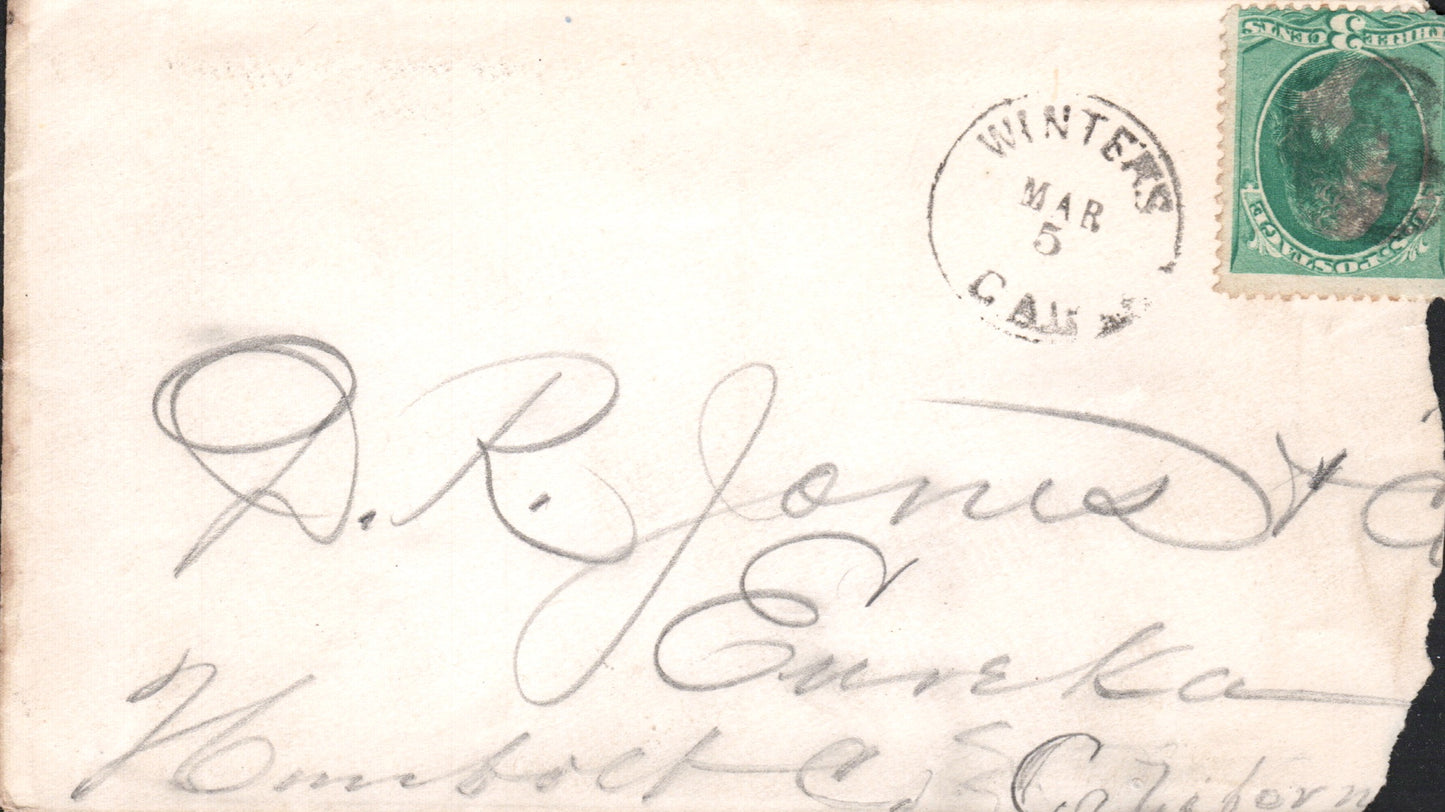 THREE 3 CENTS
POSTAGE
WINTERS
MAR
5
CAL
D. R. Jones & C
Eureka
Humbolt Co California